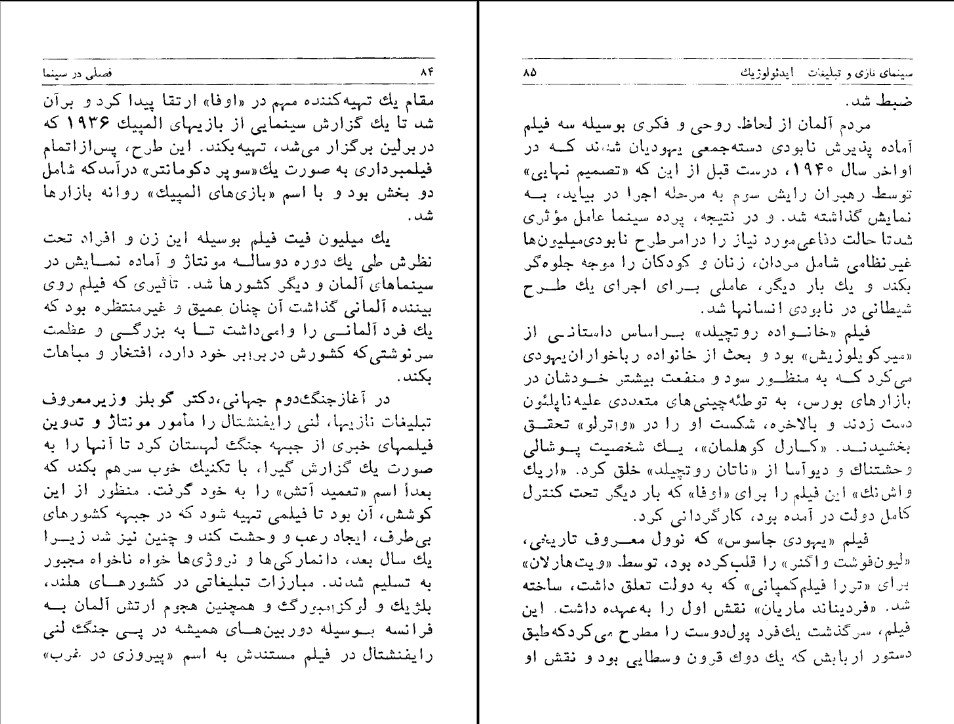 ۸۴ فصلی در سینما
مقام یك تهیه‌کننده مهم در «اوفا» ارتقا پیدا کرد و برآن
شد تا یك گزارش سینمایی از بازیهای المپیك ۱۹۳۶ که
دربرلین برگزار می‌شد، تهیه‌بکند. این طرح، پس‌ازاتمام
فیلمبرداری به صورت یك«سوپر دکومانتر» درآمدکه شامل
دو بخش بود و با اسم «بازی‌های المپیك» روانه بازارها
شد.
یك میلیون فیت فیلم بوسیله این زن و افراد تحت
نظرش طی یك دوره دوساله مونتاژ و آماده نمایش در
سینماهای آلمان و دیگر کشورها شد. تأثیری که فیلم روی
بیننده آلمانی گذاشت آن چنان عمیق و غیرمنتظره بود که
یك فرد آلمانی را وامی‌داشت تا به بزرگی و عظمت
سرنوشتی‌که کشورش دربرابر خود دارد، افتخار و مباهات
بکند.
در آغازجنگ‌دوم جهانی،دکتر گوبلز وزیرمعروف
تبلیغات نازیها، لنی رایفنشتال را مأمور مونتاژ و تدوین
فیلمهای خبری از جبهه جنگ لهستان کرد تا آنها را به
صورت یك گزارش گیرا، با تکنیك خوب سرهم بکند که
بعداً اسم «تعمید آتش» را به خود گرفت. منظور از این
کوشش، آن بود تا فیلمی تهیه شود که در جبهه کشورهای
بی‌طرف، ایجاد رعب و وحشت کند و چنین نیز شد زیرا
یك سال بعد، دانمارکی‌ها و نروژی‌ها خواه ناخواه مجبور
به تسلیم شدند. مبارزات تبلیغاتی در کشورهای هلند،
بلژیك و لوکزامبورگ و همچنین هجوم ارتش آلمان به
فرانسه بوسیله دوربین‌های همیشه در پی جنگ لنی
رایفنشتال در فیلم مستندش به اسم «پیروزی در غرب»
سینمای نازی و تبلیغات ایدئولوژیك ۸۵
ضبط شد.
مردم آلمان از لحاظ روحی و فکری بوسیله سه فیلم
آماده پذیرش نابودی دسته‌جمعی یهودیان شدند که در
اواخر سال ۱۹۴۰، درست قبل از این که «تصمیم نهایی»
توسط رهبران رایش سوم به مرحله اجرا در بیاید، به
نمایش گذاشته شد. و در نتیجه، پرده سینما عامل مؤثری
شدتا حالت دفاعی‌مورد نیاز را درامرطرح نابودی‌میلیون‌ها
غیرنظامی شامل مردان، زنان و کودکان را موجه جلوه‌گر
بکند و یك بار دیگر، عاملی برای اجرای یك طرح
شیطانی در نابودی انسانها شد.
فیلم «خانواده روتچیلد» براساس داستانی از
«میرکویلوزیش» بود و بحث از خانواده رباخواران‌یهودی
می‌کرد که به منظور سود و منفعت بیشتر خودشان در
بازارهای بورس، به توطئه‌چینی‌های متعددی علیه‌ناپلئون
دست زدند و بالاخره، شکست او را در «واترلو» تحقق
بخشیدند. «کارل کوهلمان»، یك شخصیت پوشالی
وحشتناك و دیوآسا از «ناتان روتچیلد» خلق کرد. «اریك
واش‌نك» این فیلم را برای «اوفا» که بار دیگر تحت کنترل
کامل دولت در آمده بود، کارگردانی کرد.
فیلم «یهودی جاسوس» که نوول معروف تاریخی،
«لیون‌فوشت واگنر» را قلب‌کرده بود، توسط «ویت‌هارلان»
برای «تررا فیلم‌کمپانی» که به دولت تعلق داشت، ساخته
شد. «فردیناند ماریان» نقش اول را به‌عهده داشت. این
فیلم، سرگذشت یك‌فرد پول‌دوست را مطرح می‌کردکه‌طبق
دستور اربابش که یك دوك قرون وسطایی بود و نقش او